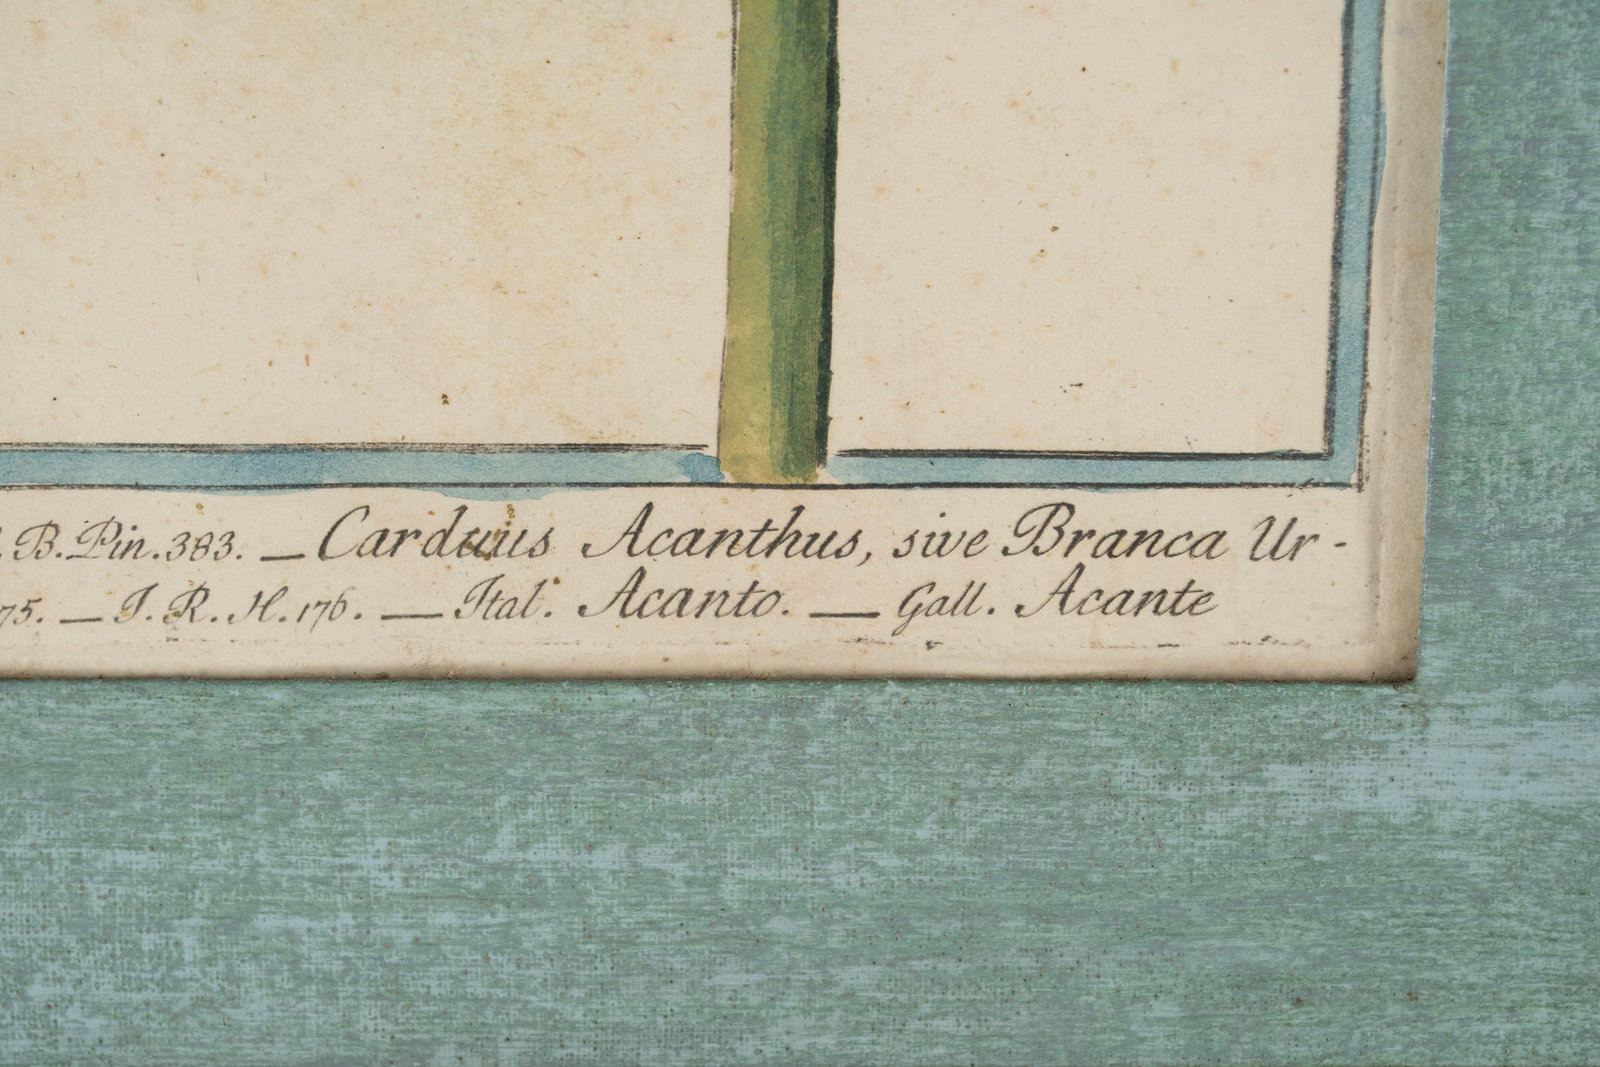 B. Pin. 383. — Carduus Acanthus, sive Branca Ur-
75. — I. R. H. 176. — Ital. Acanto. — Gall. Acante